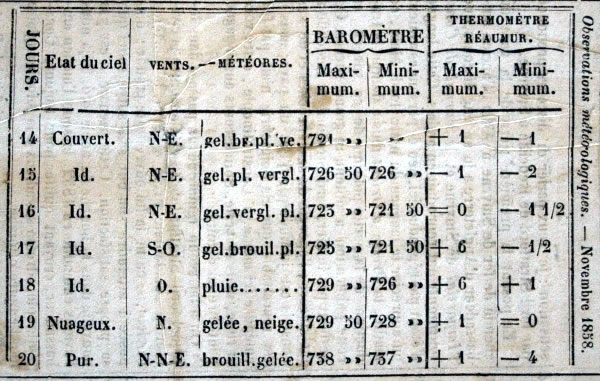 JOURS.
Etat du ciel
VENTS. — MÉTÉORES.
BAROMÈTRE
THERMOMÈTRE
RÉAUMUR.
Maxi-
mum.
Mini-
mum.
Maxi-
mum.
Mini-
mum.
14 Couvert. N-E. gel.br.pl.ve. 721 »» »» + 1 — 1
15 Id. N-E. gel.pl. vergl. 726 50 726 »» — 1 — 2
16 Id. N-E. gel.vergl. pl. 723 »» 721 50 = 0 — 1 1/2
17 Id. S-O. gel.brouil.pl. 723 »» 721 50 + 6 — 1/2
18 Id. O. pluie....... 729 »» 726 »» + 6 + 1
19 Nuageux. N. gelée, neige. 729 50 728 »» + 1 = 0
20 Pur. N-N-E. brouill.gelée. 738 »» 737 »» + 1 — 4
Observations météorologiques. — Novembre 1858.